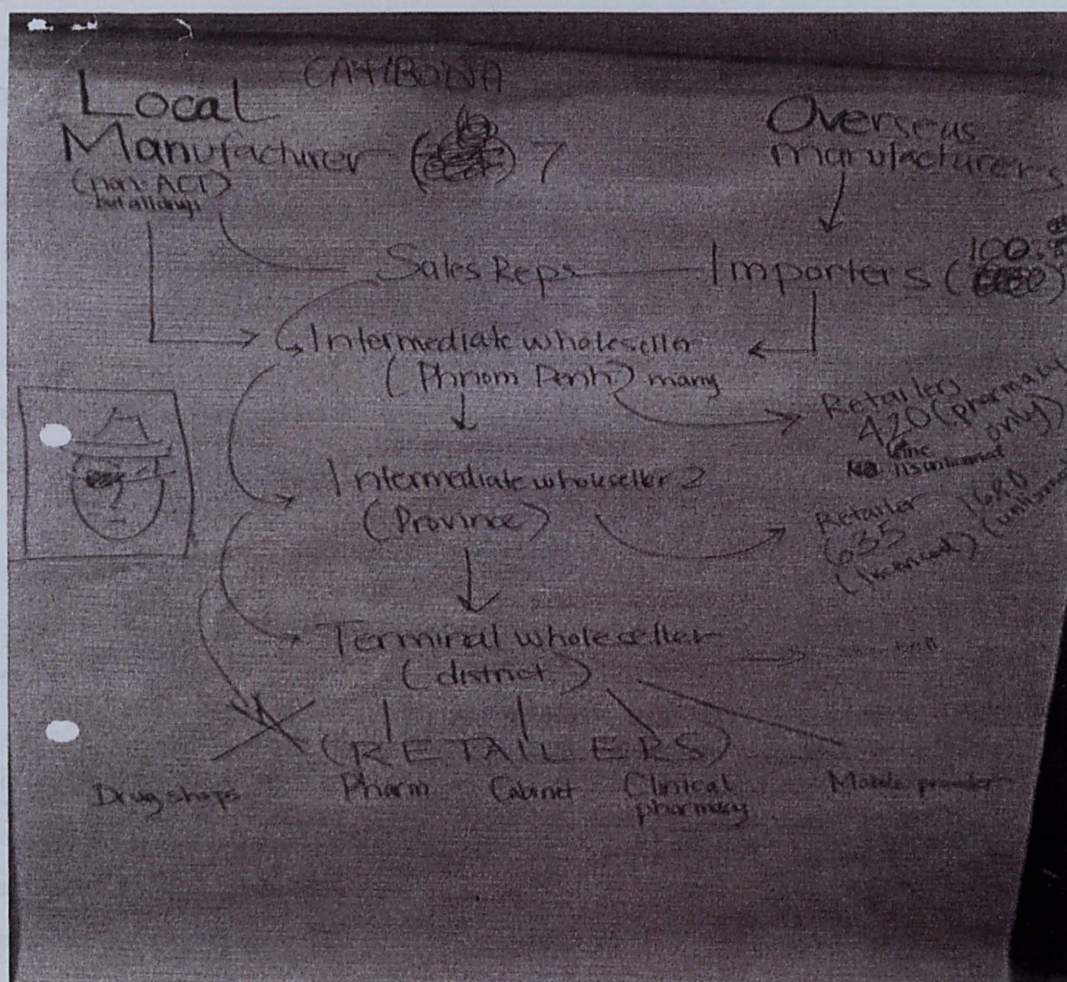 CAMBODIA
Local
Manufacturer ( ) 7
(non-ACT)
but all drugs
Overseas
manufacturers
Sales Reps
Importers (100
Intermediate wholeseller
(Phnom Penh) many
Retailers
420 (pharmacy
only)
Intermediate wholeseller 2
(Province)
Retailer 1680
635
(licenced)
Terminal wholeseller
(district)
(RETAILERS)
Drug shops
Pharm
Cabinet
Clinical
pharmacy
Mobile provider